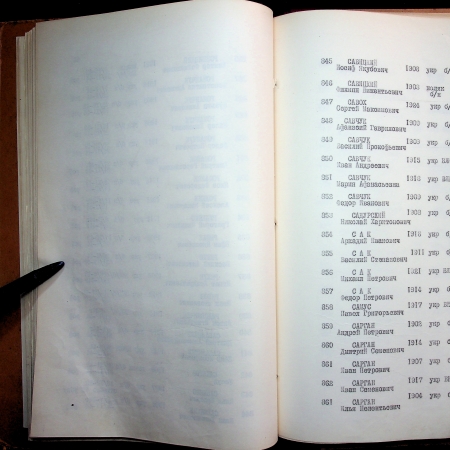 845 САВИЦКИЙ
Иосиф Якубович 1902 укр б/
846 САВИЦКИЙ
1903 б/п
847 САВОХ
Сергей 1924 укр б/
848 САВЧУК
1909 укр б/
849 САВЧУК
Василий Прокофьевич 1900 укр б/
850 САВЧУК
Иван Андреевич 1915 укр
851 САВЧУК
Мария Афанасьевна 1912 укр
852 САВЧУК
Федор Иванович 1903 укр б/
Николай Харитонович 1903 укр б/
854 С А К
Аркадий Иванович 1918 укр б/
855 С А К
Василий Степанович 1911 укр б/
856 С А К
Михаил Петрович 1921 укр
857 С А К
Федор Петрович 1914 укр б/
858 САНУС
Павел Григорьевич 1917 укр
859 САРГАН
Андрей Петрович 1902 укр б/
860 САРГАН
Дмитрий Семенович 1914 укр б/
861 САРГАН
Иван Петрович 1907 укр б/
862 САРГАН
Иван Семенович 1917 укр
САРГАН
1904 укр б/